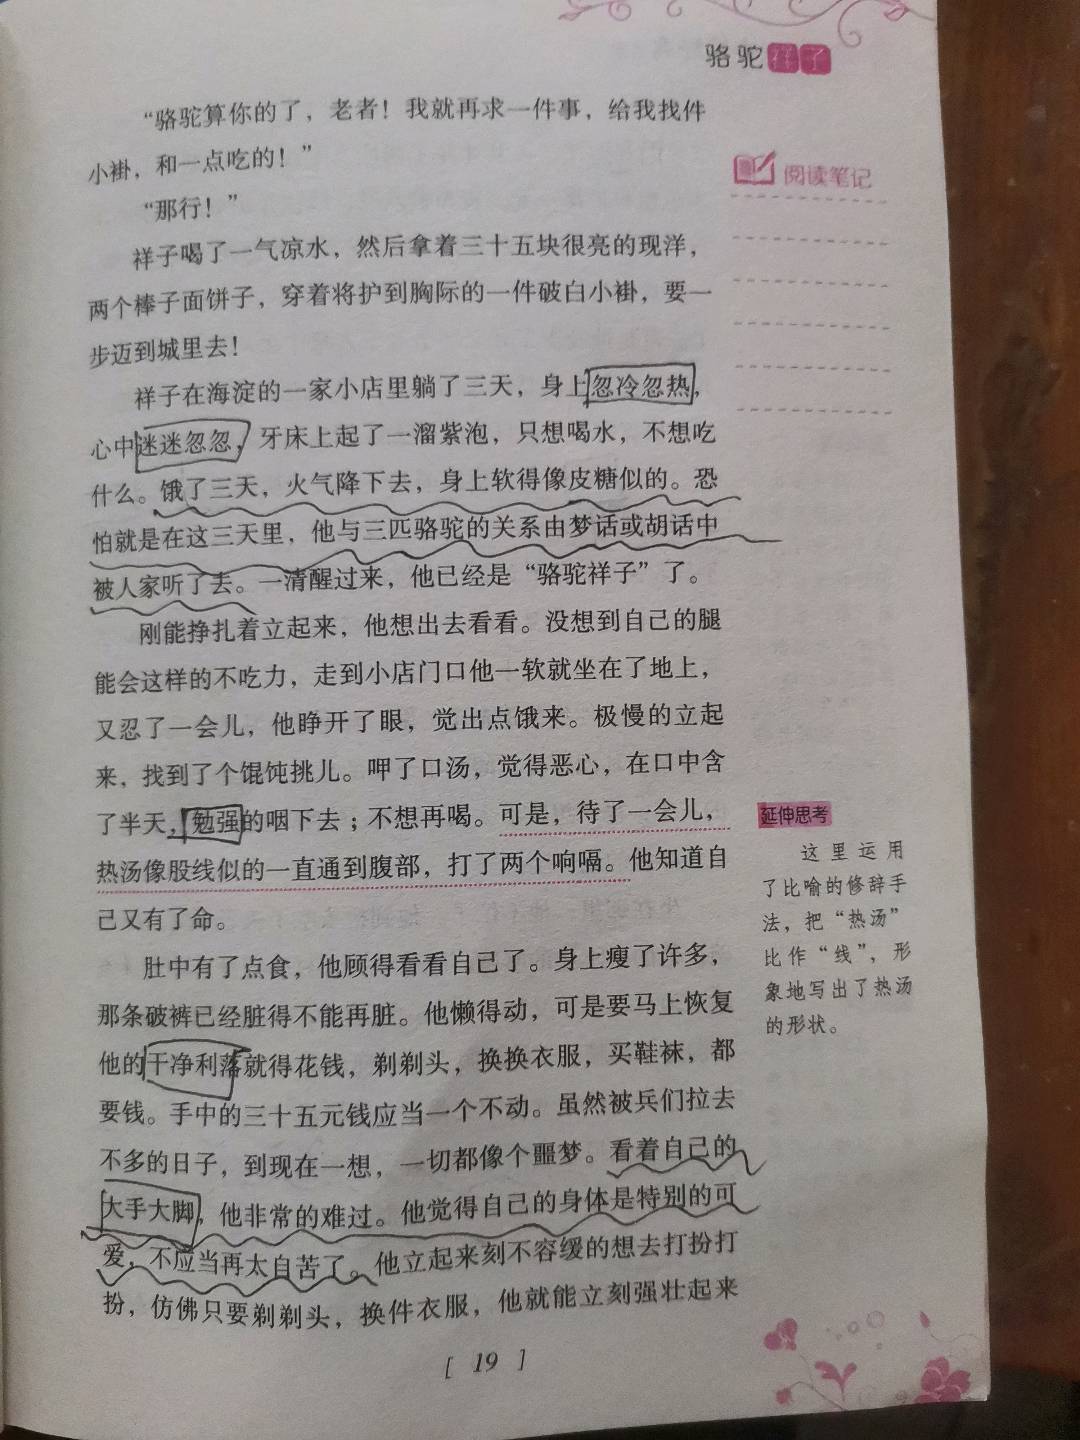 骆驼祥子
“骆驼算你的了，老者！我就再求一件事，给我找件
小褂，和一点吃的！”
“那行！”
祥子喝了一气凉水，然后拿着三十五块很亮的现洋，
两个棒子面饼子，穿着将护到胸际的一件破白小褂，要一
步迈到城里去！
祥子在海淀的一家小店里躺了三天，身上忽冷忽热，
心中迷迷忽忽，牙床上起了一溜紫泡，只想喝水，不想吃
什么。饿了三天，火气降下去，身上软得像皮糖似的。恐
怕就是在这三天里，他与三匹骆驼的关系由梦话或胡话中
被人家听了去。一清醒过来，他已经是“骆驼祥子”了。
刚能挣扎着立起来，他想出去看看。没想到自己的腿
能会这样的不吃力，走到小店门口他一软就坐在了地上，
又忍了一会儿，他睁开了眼，觉出点饿来。极慢的立起
来，找到了个馄饨挑儿。呷了口汤，觉得恶心，在口中含
了半天，勉强的咽下去；不想再喝。可是，待了一会儿，
热汤像股线似的一直通到腹部，打了两个响嗝。他知道自
己又有了命。
肚中有了点食，他顾得看看自己了。身上瘦了许多，
那条破裤已经脏得不能再脏。他懒得动，可是要马上恢复
他的干净利落就得花钱，剃剃头，换换衣服，买鞋袜，都
要钱。手中的三十五元钱应当一个不动。虽然被兵们拉去
不多的日子，到现在一想，一切都像个噩梦。看着自己的
大手大脚，他非常的难过。他觉得自己的身体是特别的可
爱，不应当再太自苦了。他立起来刻不容缓的想去打扮打
扮，仿佛只要剃剃头，换件衣服，他就能立刻强壮起来
阅读笔记
延伸思考
这里运用
了比喻的修辞手
法，把“热汤”
比作“线”，形
象地写出了热汤
的形状。
[ 19 ]